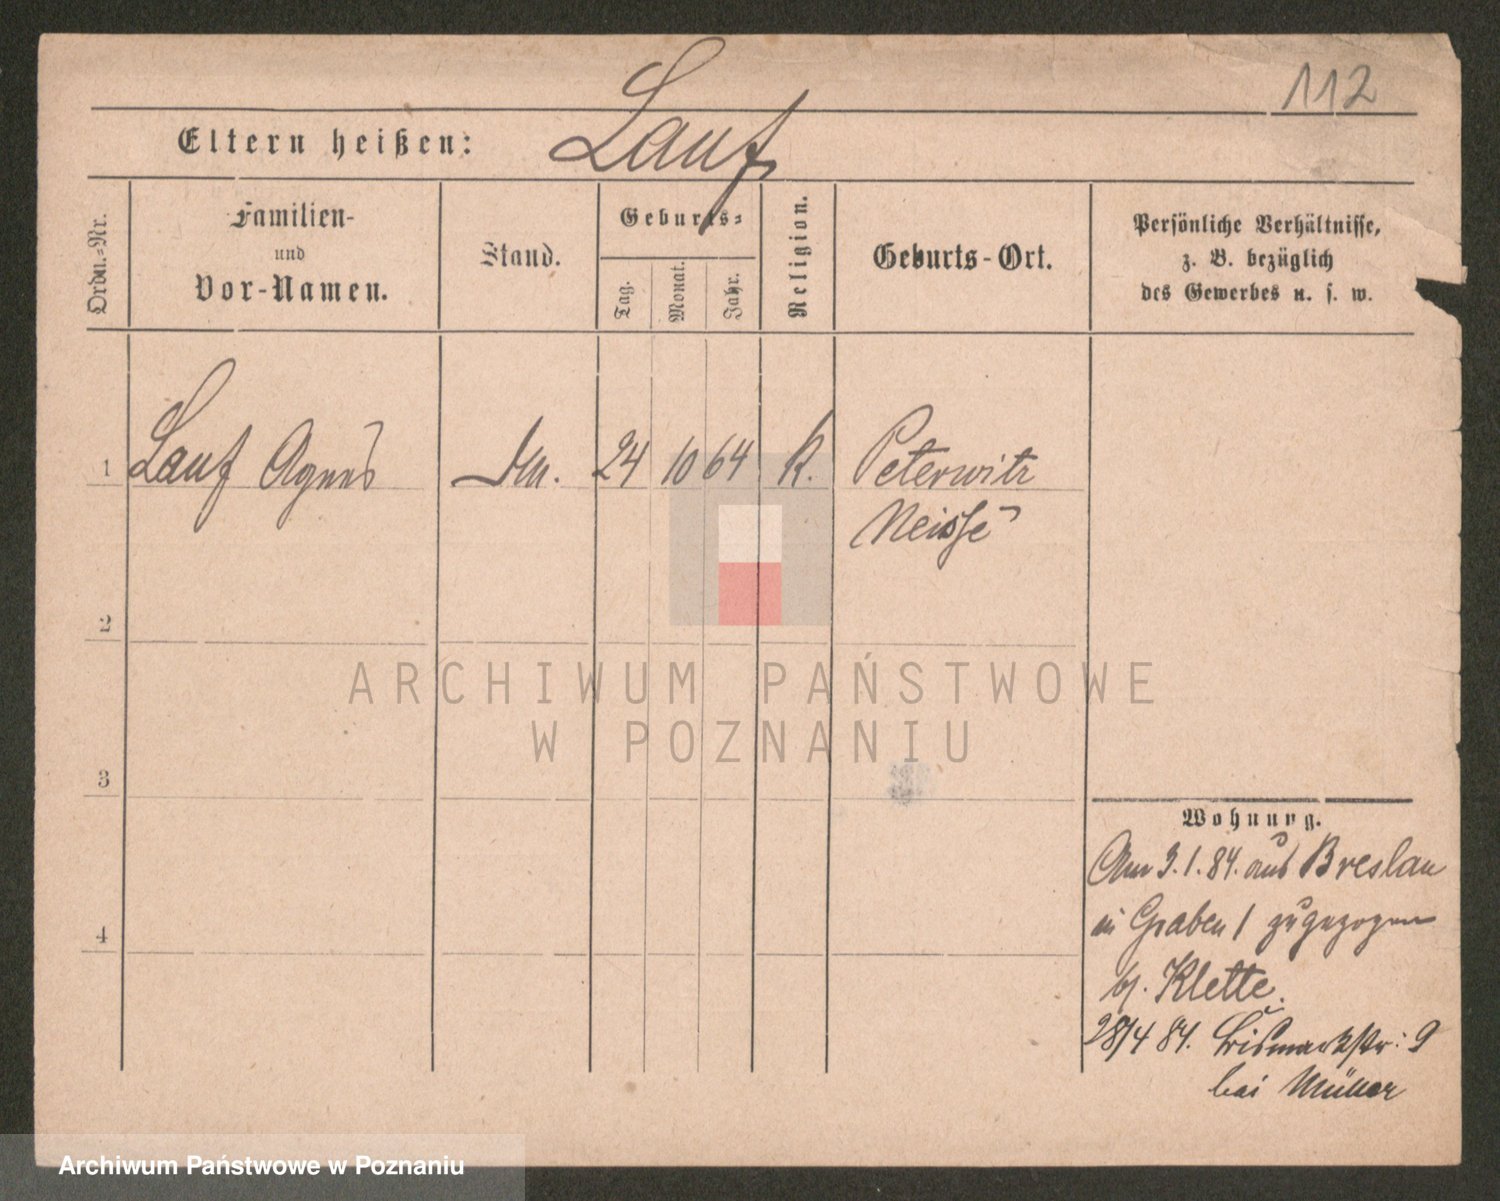 112
Eltern heißen: Lauf
Ordn.-Nr.
Familien-
und
Vor-Namen.
Stand.
Geburts-
Tag.
Monat.
Jahr.
Religion.
Geburts-Ort.
Persönliche Verhältnisse,
z. B. bezüglich
des Gewerbes u. s. w.
1 Lauf Agnes 24 10 64 K. Peterwitz
Neisse
2
3
4
ARCHIWUM PAŃSTWOWE
W POZNANIU
Wohnung.
Am 3.1.84. aus Breslau
in Graben 1 zugezogen
b/. Klette.
28/4 84. Bismarckstr: 9
bei Müller
Archiwum Państwowe w Poznaniu